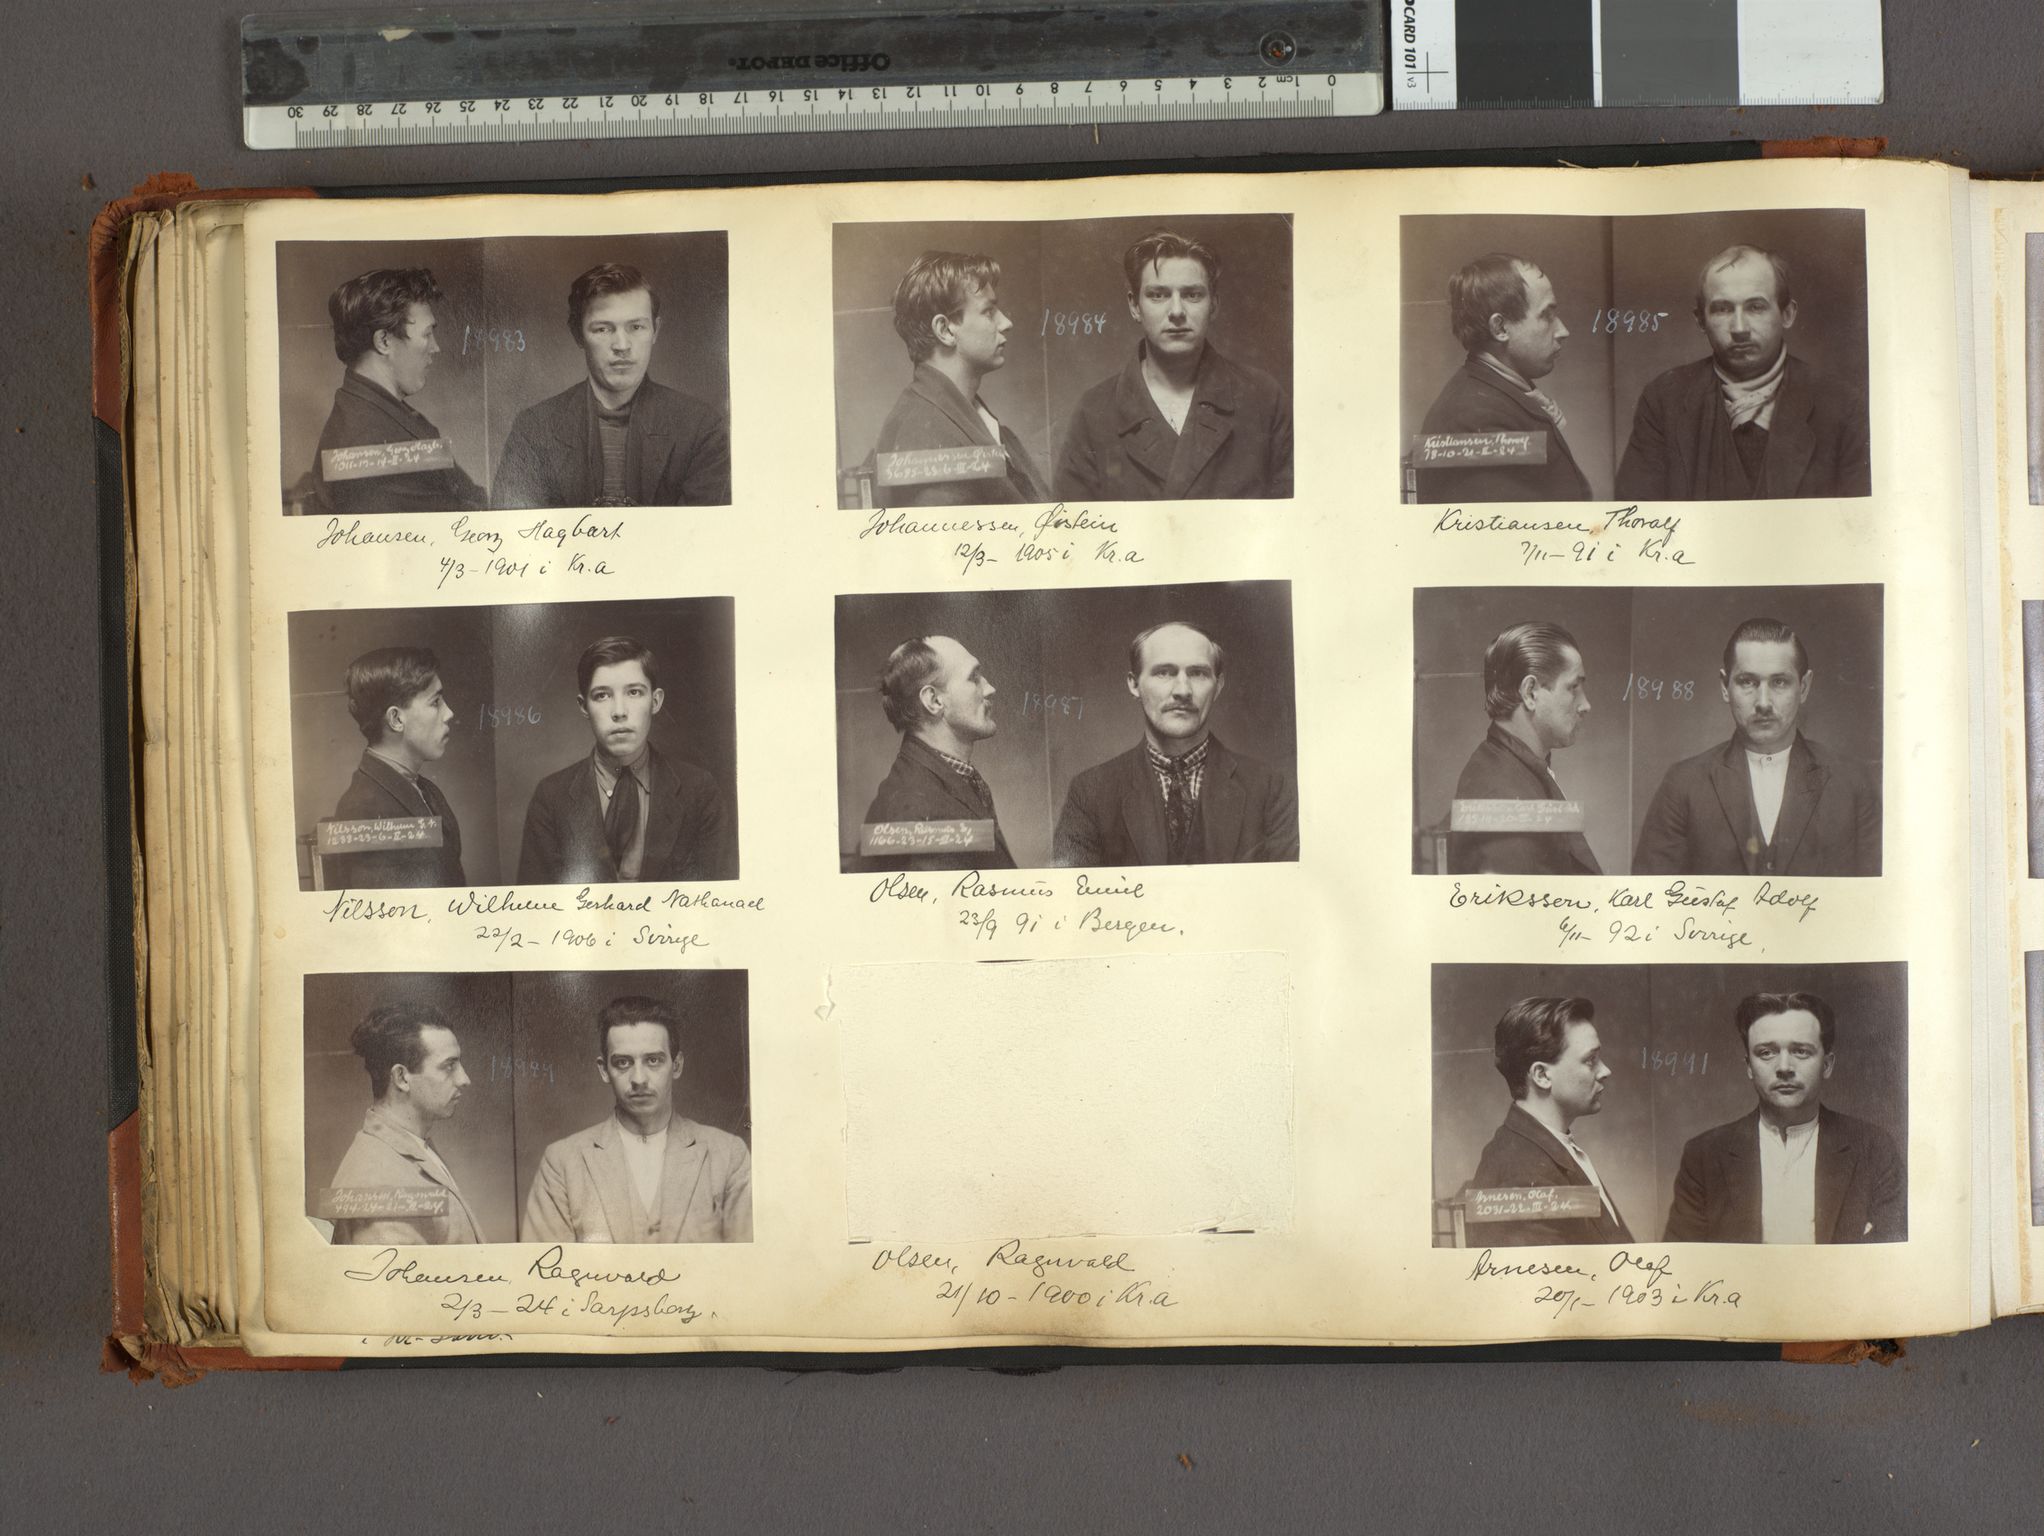 Office DEPOT
0 1cm 2 3 4 5 6 7 8 9 10 11 12 13 14 15 16 17 18 19 20 21 22 23 24 25 26 27 28 29 30
OCARD 101 v3
18983
Johansen, Georg Hagb.
Johansen, Georg Hagbart
4/3-1901 i Kr.a
18984
Johannessen
Johannessen, Øistein
12/3- 1905 i Kr.a
18985
Kristiansen, Thoralf
78-10-21-II-24
Kristiansen, Thoralf
7/11-91 i Kr.a
18986
Nilsson, Wilhelm G. N.
1288-23-6-II-24
Nilsson, Wilhelm Gerhard Nathanael
22/2-1906 i Sverige
18987
Olsen, Rasmus E,
1166-23-15-II-24
Olsen, Rasmus Emil
23/9 91 i Bergen.
18988
Eriksson, Karl Gustaf Adolf
6/11- 92 i Sverige
18989
Johansen, Ragnvald
494-24-21-III-24
Johansen, Ragnvald
2/3-24 i Sarpsborg.
Olsen, Ragnvald
21/10-1900 i Kr.a
18991
Arnesen, Olaf.
2031-22-III-24
Arnesen, Olaf
20/1-1903 i Kr.a